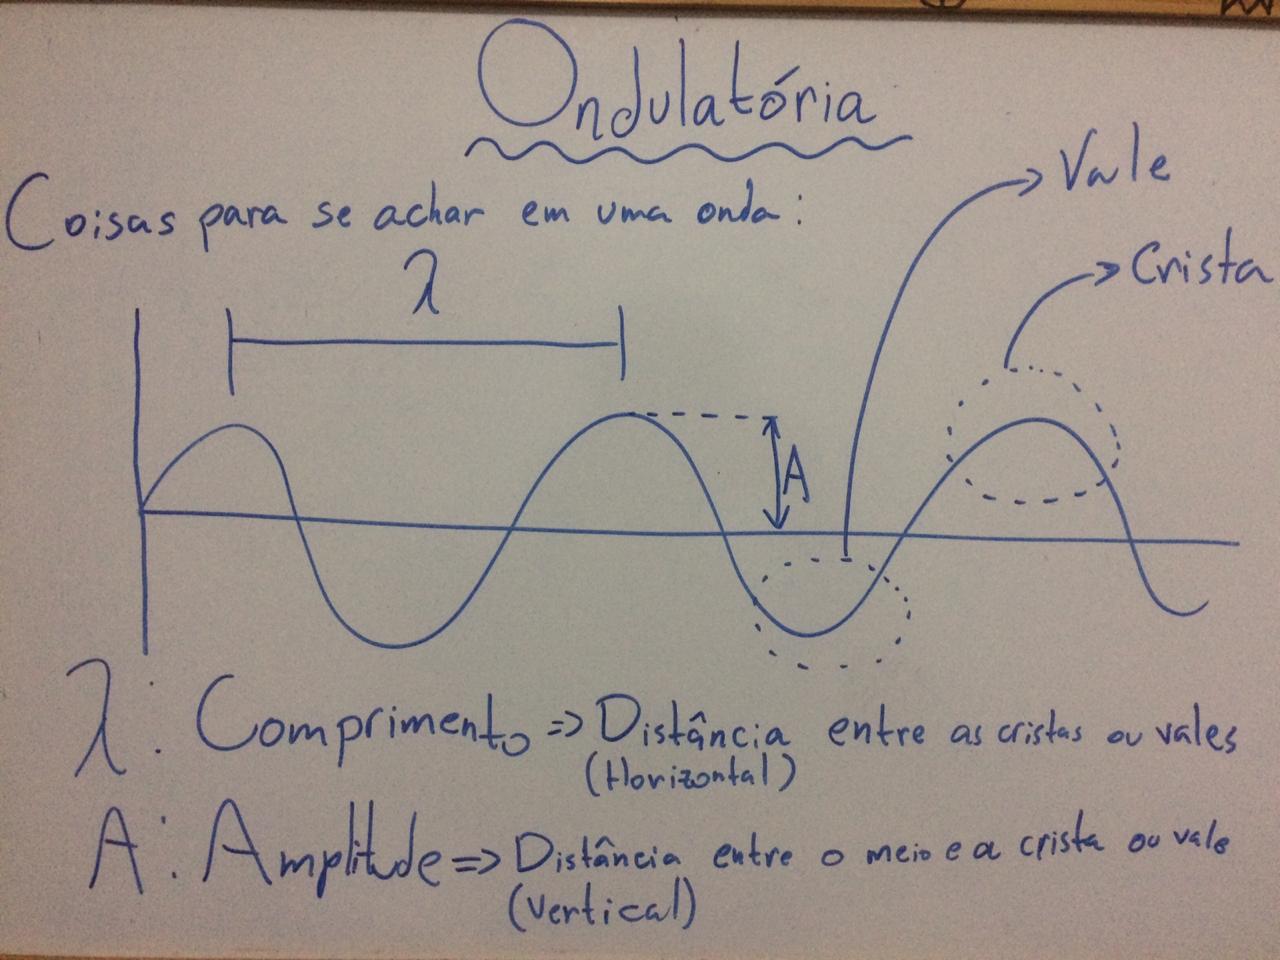 Ondulatória
Coisas para se achar em uma onda:
Vale
Crista
λ
A
λ: Comprimento => Distância entre as cristas ou vales
(Horizontal)
A: Amplitude => Distância entre o meio e a crista ou vale
(Vertical)